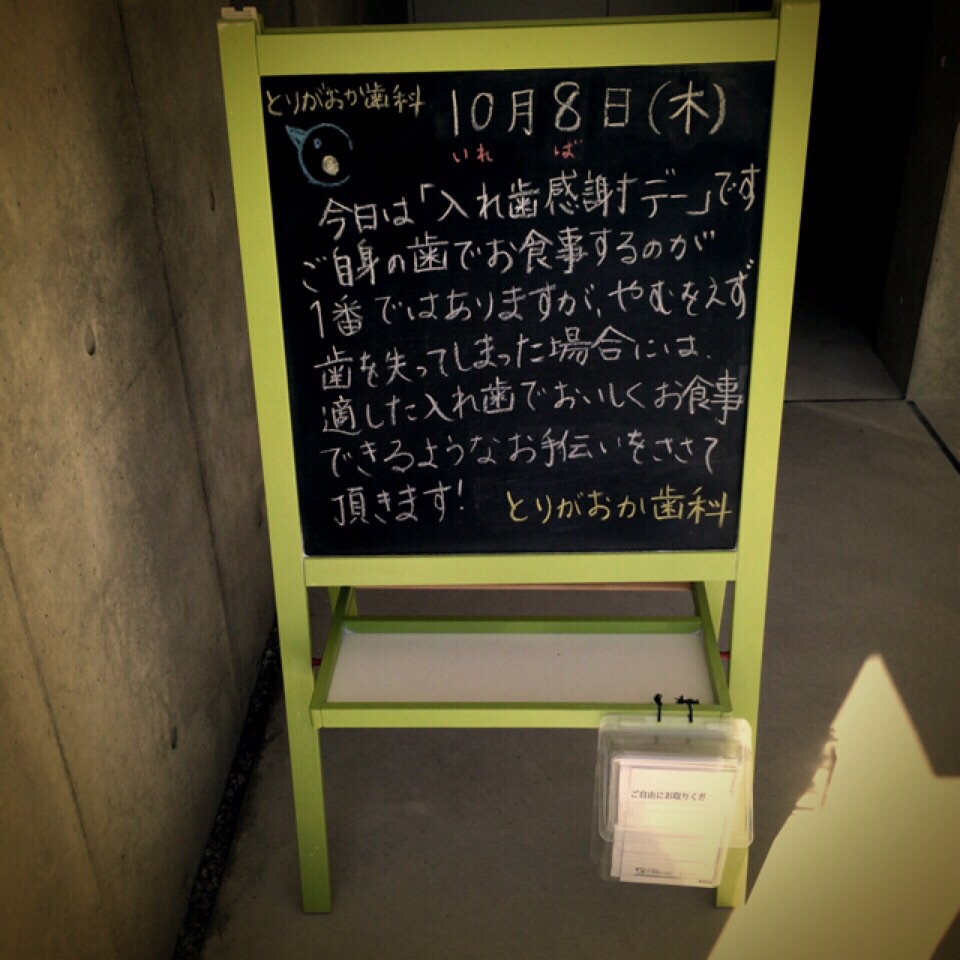 とりがおか歯科
10月8日(木)
いれ ば
今日は「入れ歯感謝デー」です
ご自身の歯でお食事するのが
1番ではありますが、やむをえず
歯を失ってしまった場合には、
適した入れ歯でおいしくお食事
できるようなお手伝いをさせて
頂きます!
とりがおか歯科
ご自由にお取りくだ